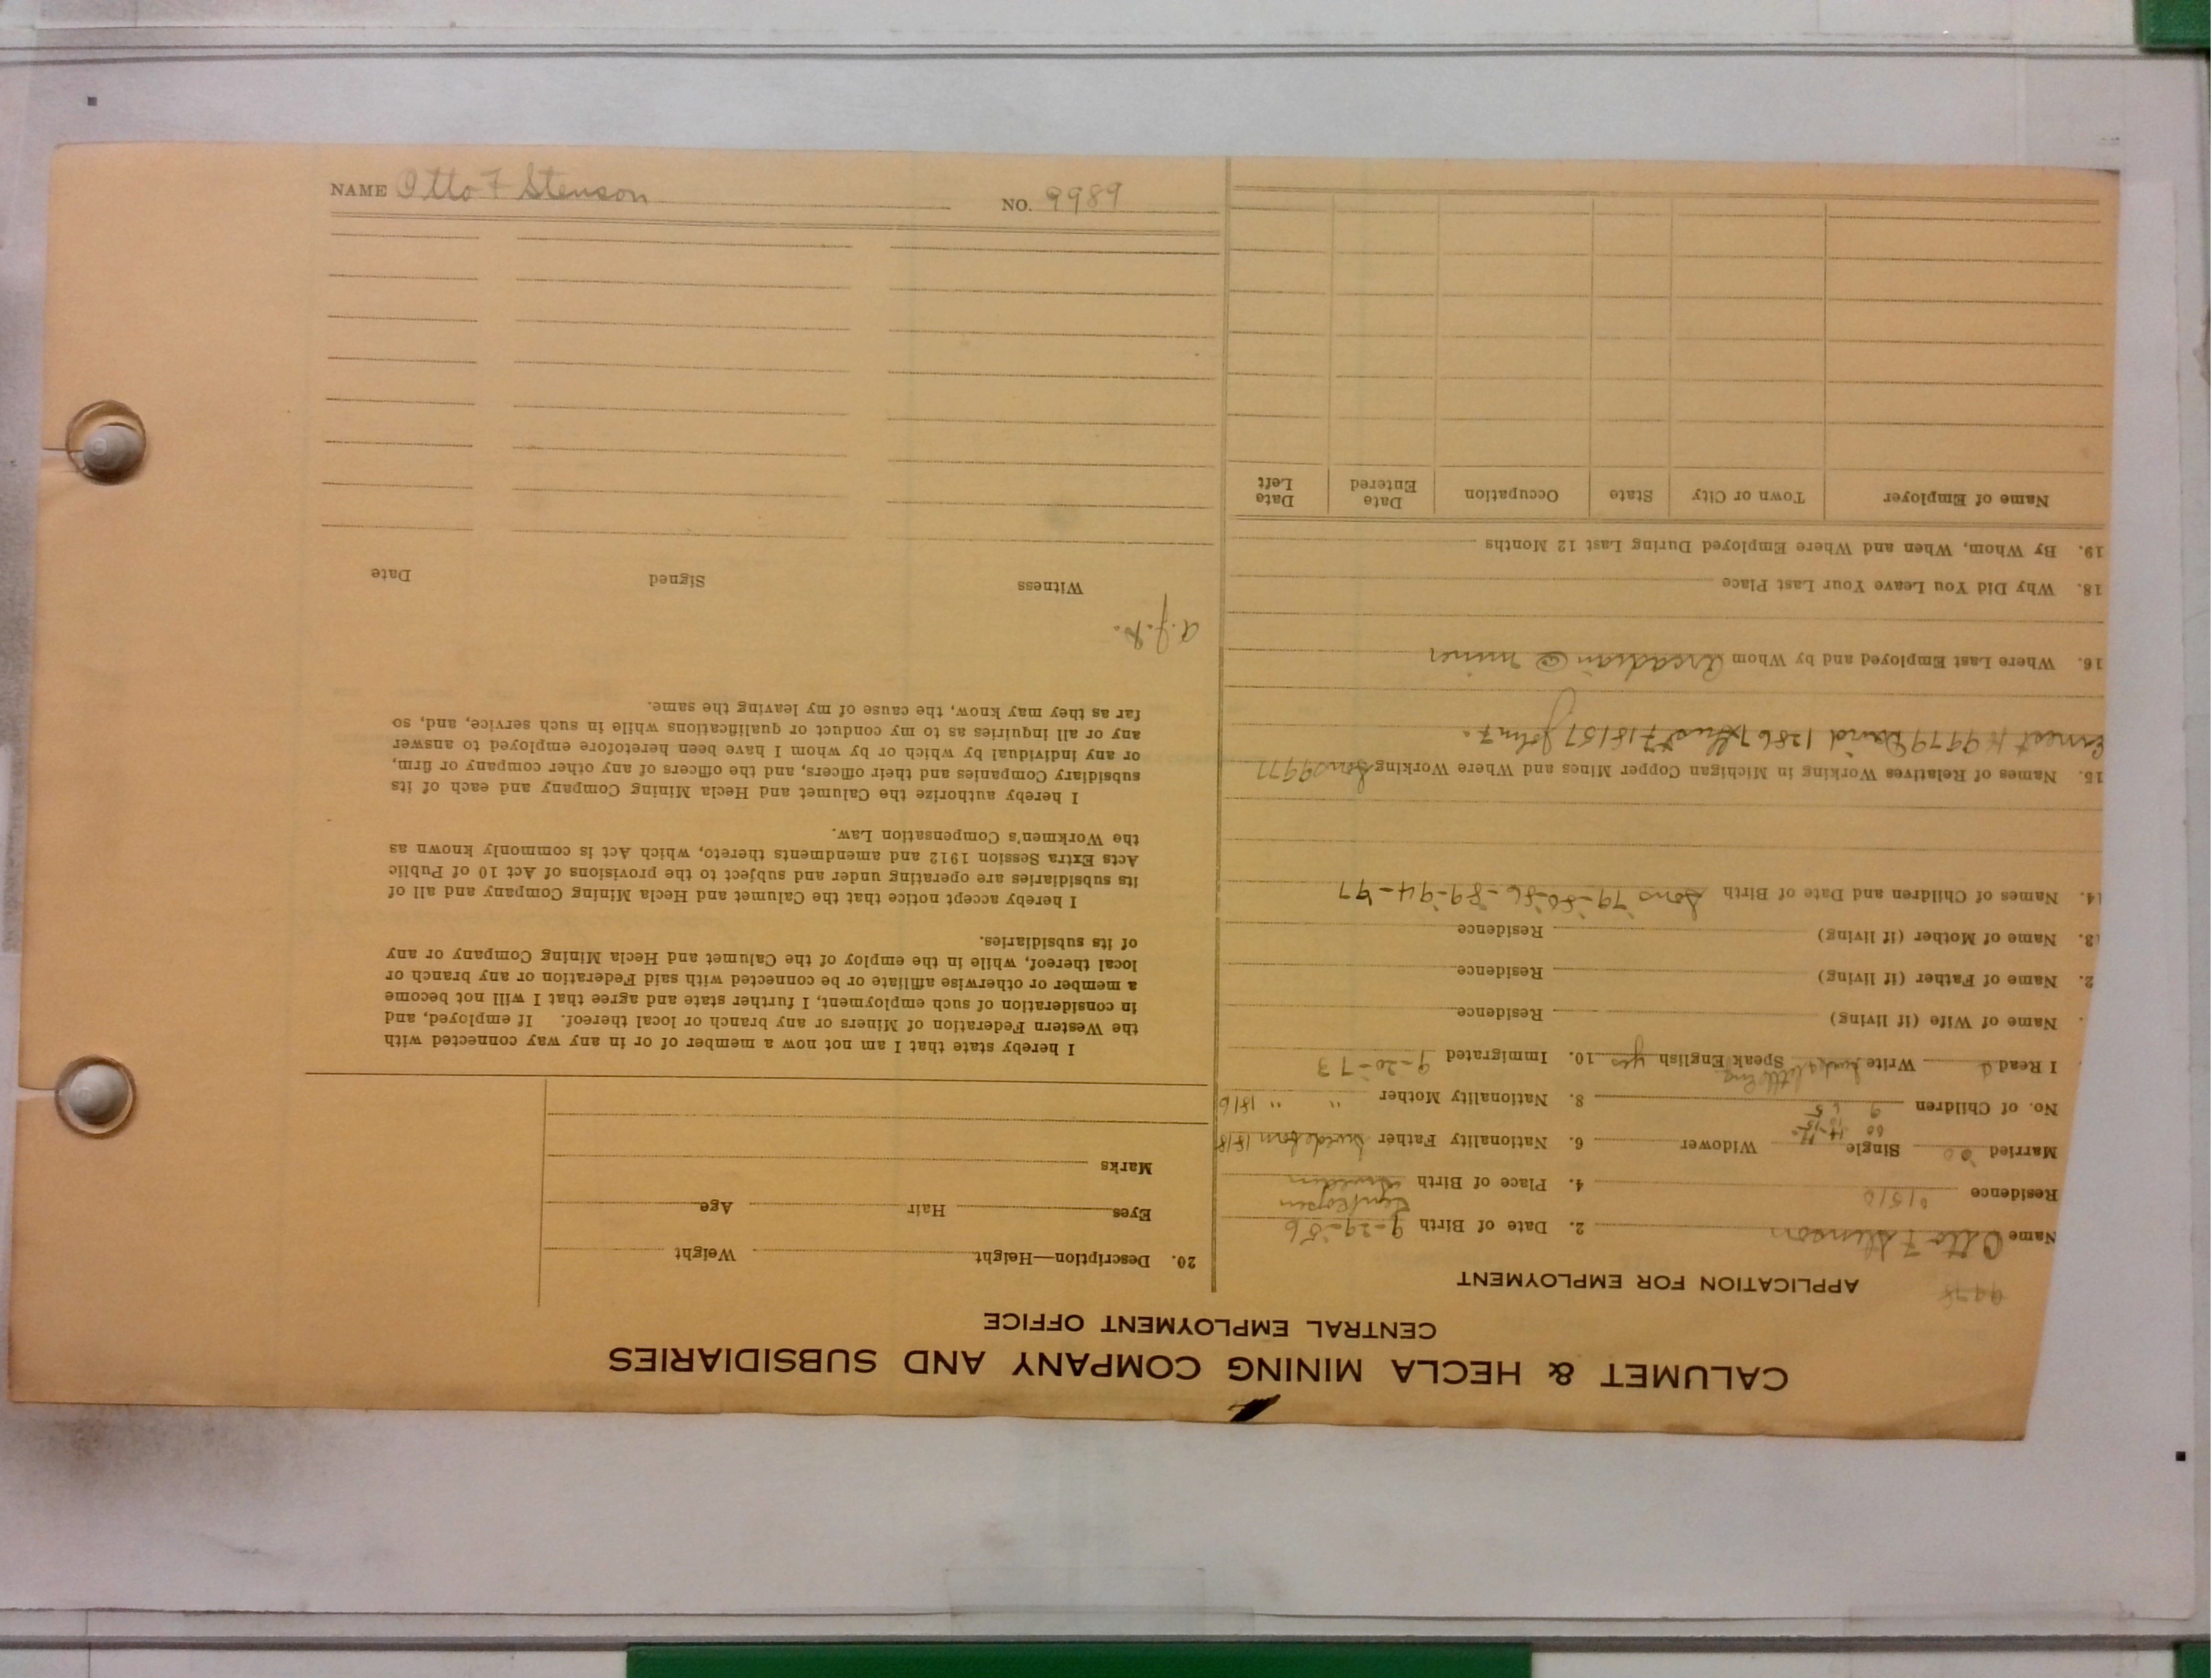 NAME Otto F Stenson NO. 9989
CALUMET & HECLA MINING COMPANY AND SUBSIDIARIES
CENTRAL EMPLOYMENT OFFICE
APPLICATION FOR EMPLOYMENT
Name Otto F Stenson 2. Date of Birth 9-29-56
Residence 4. Place of Birth Sweden
Married Single Widower 6. Nationality Father 1818
No. of Children 9 8. Nationality Mother " " 1816
I Read Write Speak English yes 10. Immigrated 9-20-73
Name of Wife (if living) Residence
2. Name of Father (if living) Residence
3. Name of Mother (if living) Residence
14. Names of Children and Date of Birth Sons 79-80-86-89-94-97
15. Names of Relatives Working in Michigan Copper Mines and Where Working Sons 9977
Ernest H 9979 David 12867 Gust F 18157 John F.
16. Where Last Employed and by Whom Arcadian @ miner
18. Why Did You Leave Your Last Place
19. By Whom, When and Where Employed During Last 12 Months
Name of Employer Town or City State Occupation Date Entered Date Left
20. Description—Height Weight
Eyes Hair Age
Marks
I hereby state that I am not now a member of or in any way connected with
the Western Federation of Miners or any branch or local thereof. If employed, and
in consideration of such employment, I further state and agree that I will not become
a member or otherwise affiliate or be connected with said Federation or any branch or
local thereof, while in the employ of the Calumet and Hecla Mining Company or any
of its subsidiaries.
I hereby accept notice that the Calumet and Hecla Mining Company and all of
its subsidiaries are operating under and subject to the provisions of Act 10 of Public
Acts Extra Session 1912 and amendments thereto, which Act is commonly known as
the Workmen's Compensation Law.
I hereby authorize the Calumet and Hecla Mining Company and each of its
subsidiary Companies and their officers, and the officers of any other company or firm,
or any individual by which or by whom I have been heretofore employed to answer
any or all inquiries as to my conduct or qualifications while in such service, and, so
far as they may know, the cause of my leaving the same.
Witness Signed Date